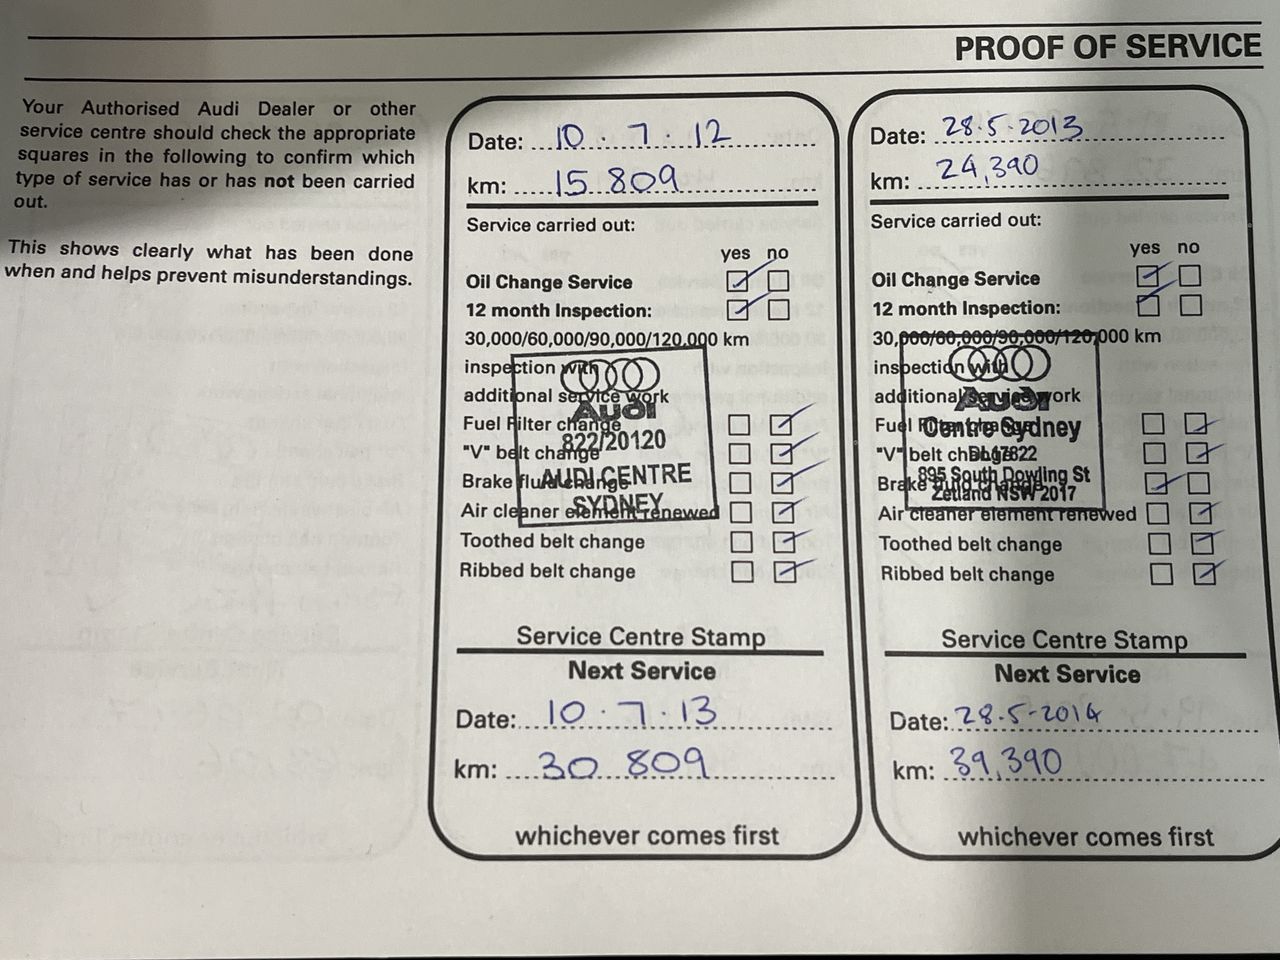 PROOF OF SERVICE
Your Authorised Audi Dealer or other
service centre should check the appropriate
squares in the following to confirm which
type of service has or has not been carried
out.
This shows clearly what has been done
when and helps prevent misunderstandings.
Date: 10.7.12
km: 15 809
Service carried out:
yes no
Oil Change Service
12 month Inspection:
30,000/60,000/90,000/120,000 km
inspection with
additional service work
Fuel Filter change
"V" belt change
Brake fluid change
Air cleaner element renewed
Toothed belt change
Ribbed belt change
Audi
822/20120
AUDI CENTRE
SYDNEY
Service Centre Stamp
Next Service
Date: 10.7.13
km: 30 809
whichever comes first
Date: 28.5.2013
km: 24,390
Service carried out:
yes no
Oil Change Service
12 month Inspection:
30,000/60,000/90,000/120,000 km
inspection with
additional service work
Fuel Filter change
"V" belt change
Brake fluid change
Air cleaner element renewed
Toothed belt change
Ribbed belt change
Audi
Centre Sydney
895 South Dowling St
Zetland NSW 2017
Service Centre Stamp
Next Service
Date: 28.5-2014
km: 39,390
whichever comes first